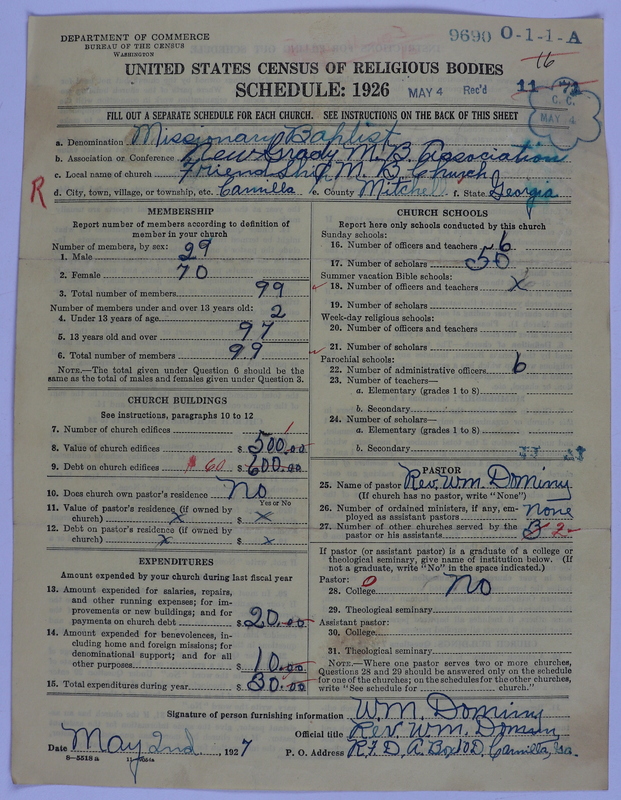 DEPARTMENT OF COMMERCE
BUREAU OF THE CENSUS
WASHINGTON
9690 O-1-1-A
16
UNITED STATES CENSUS OF RELIGIOUS BODIES
SCHEDULE: 1926
MAY 4 Rec'd
11
C. C.
MAY 4
FILL OUT A SEPARATE SCHEDULE FOR EACH CHURCH. SEE INSTRUCTIONS ON THE BACK OF THIS SHEET
a. Denomination Missionary Baptist
b. Association or Conference New Grady M. B. Association
c. Local name of church Friendship M B Church
R
d. City, town, village, or township, etc. Camilla e. County Mitchell f. State Georgia
MEMBERSHIP
Report number of members according to definition of member in your church
Number of members, by sex:
1. Male 29
2. Female 70
3. Total number of members 99
Number of members under and over 13 years old:
4. Under 13 years of age 2
5. 13 years old and over 97
6. Total number of members 99
NOTE.—The total given under Question 6 should be the same as the total of males and females given under Question 3.
CHURCH BUILDINGS
See instructions, paragraphs 10 to 12
7. Number of church edifices 1
8. Value of church edifices $ 500.00
9. Debt on church edifices $ 60 $ 600.00
10. Does church own pastor's residence No
Yes or No
11. Value of pastor's residence (if owned by
church) x $ x
12. Debt on pastor's residence (if owned by
church) x $ x
EXPENDITURES
Amount expended by your church during last fiscal year
13. Amount expended for salaries, repairs,
and other running expenses; for im-
provements or new buildings; and for
payments on church debt $ 20.00
14. Amount expended for benevolences, in-
cluding home and foreign missions; for
denominational support; and for all
other purposes $ 10.00
15. Total expenditures during year $ 30.00
CHURCH SCHOOLS
Report here only schools conducted by this church
Sunday schools:
16. Number of officers and teachers 6
17. Number of scholars 50
Summer vacation Bible schools:
18. Number of officers and teachers x
19. Number of scholars
Week-day religious schools:
20. Number of officers and teachers
21. Number of scholars
Parochial schools:
22. Number of administrative officers 6
23. Number of teachers—
a. Elementary (grades 1 to 8)
b. Secondary
24. Number of scholars—
a. Elementary (grades 1 to 8)
b. Secondary
PASTOR
25. Name of pastor Rev. Wm. Dominy
(If church has no pastor, write "None")
26. Number of ordained ministers, if any, em-
ployed as assistant pastors none
27. Number of other churches served by the
pastor or his assistants 3 2
If pastor (or assistant pastor) is a graduate of a college or
theological seminary, give name of institution below. (If
not a graduate, write "No" in the space indicated.)
Pastor: 0
28. College No
29. Theological seminary
Assistant pastor:
30. College
31. Theological seminary
NOTE.—Where one pastor serves two or more churches,
Questions 28 and 29 should be answered only on the schedule
for one of the churches; on the schedules for the other churches,
write "See schedule for church."
Signature of person furnishing information Wm. Dominy
Official title Rev. Wm. Dominy
Date May 2nd, 1927 P. O. Address R. F. D. A. Box Camilla, Ga.
8—5518a